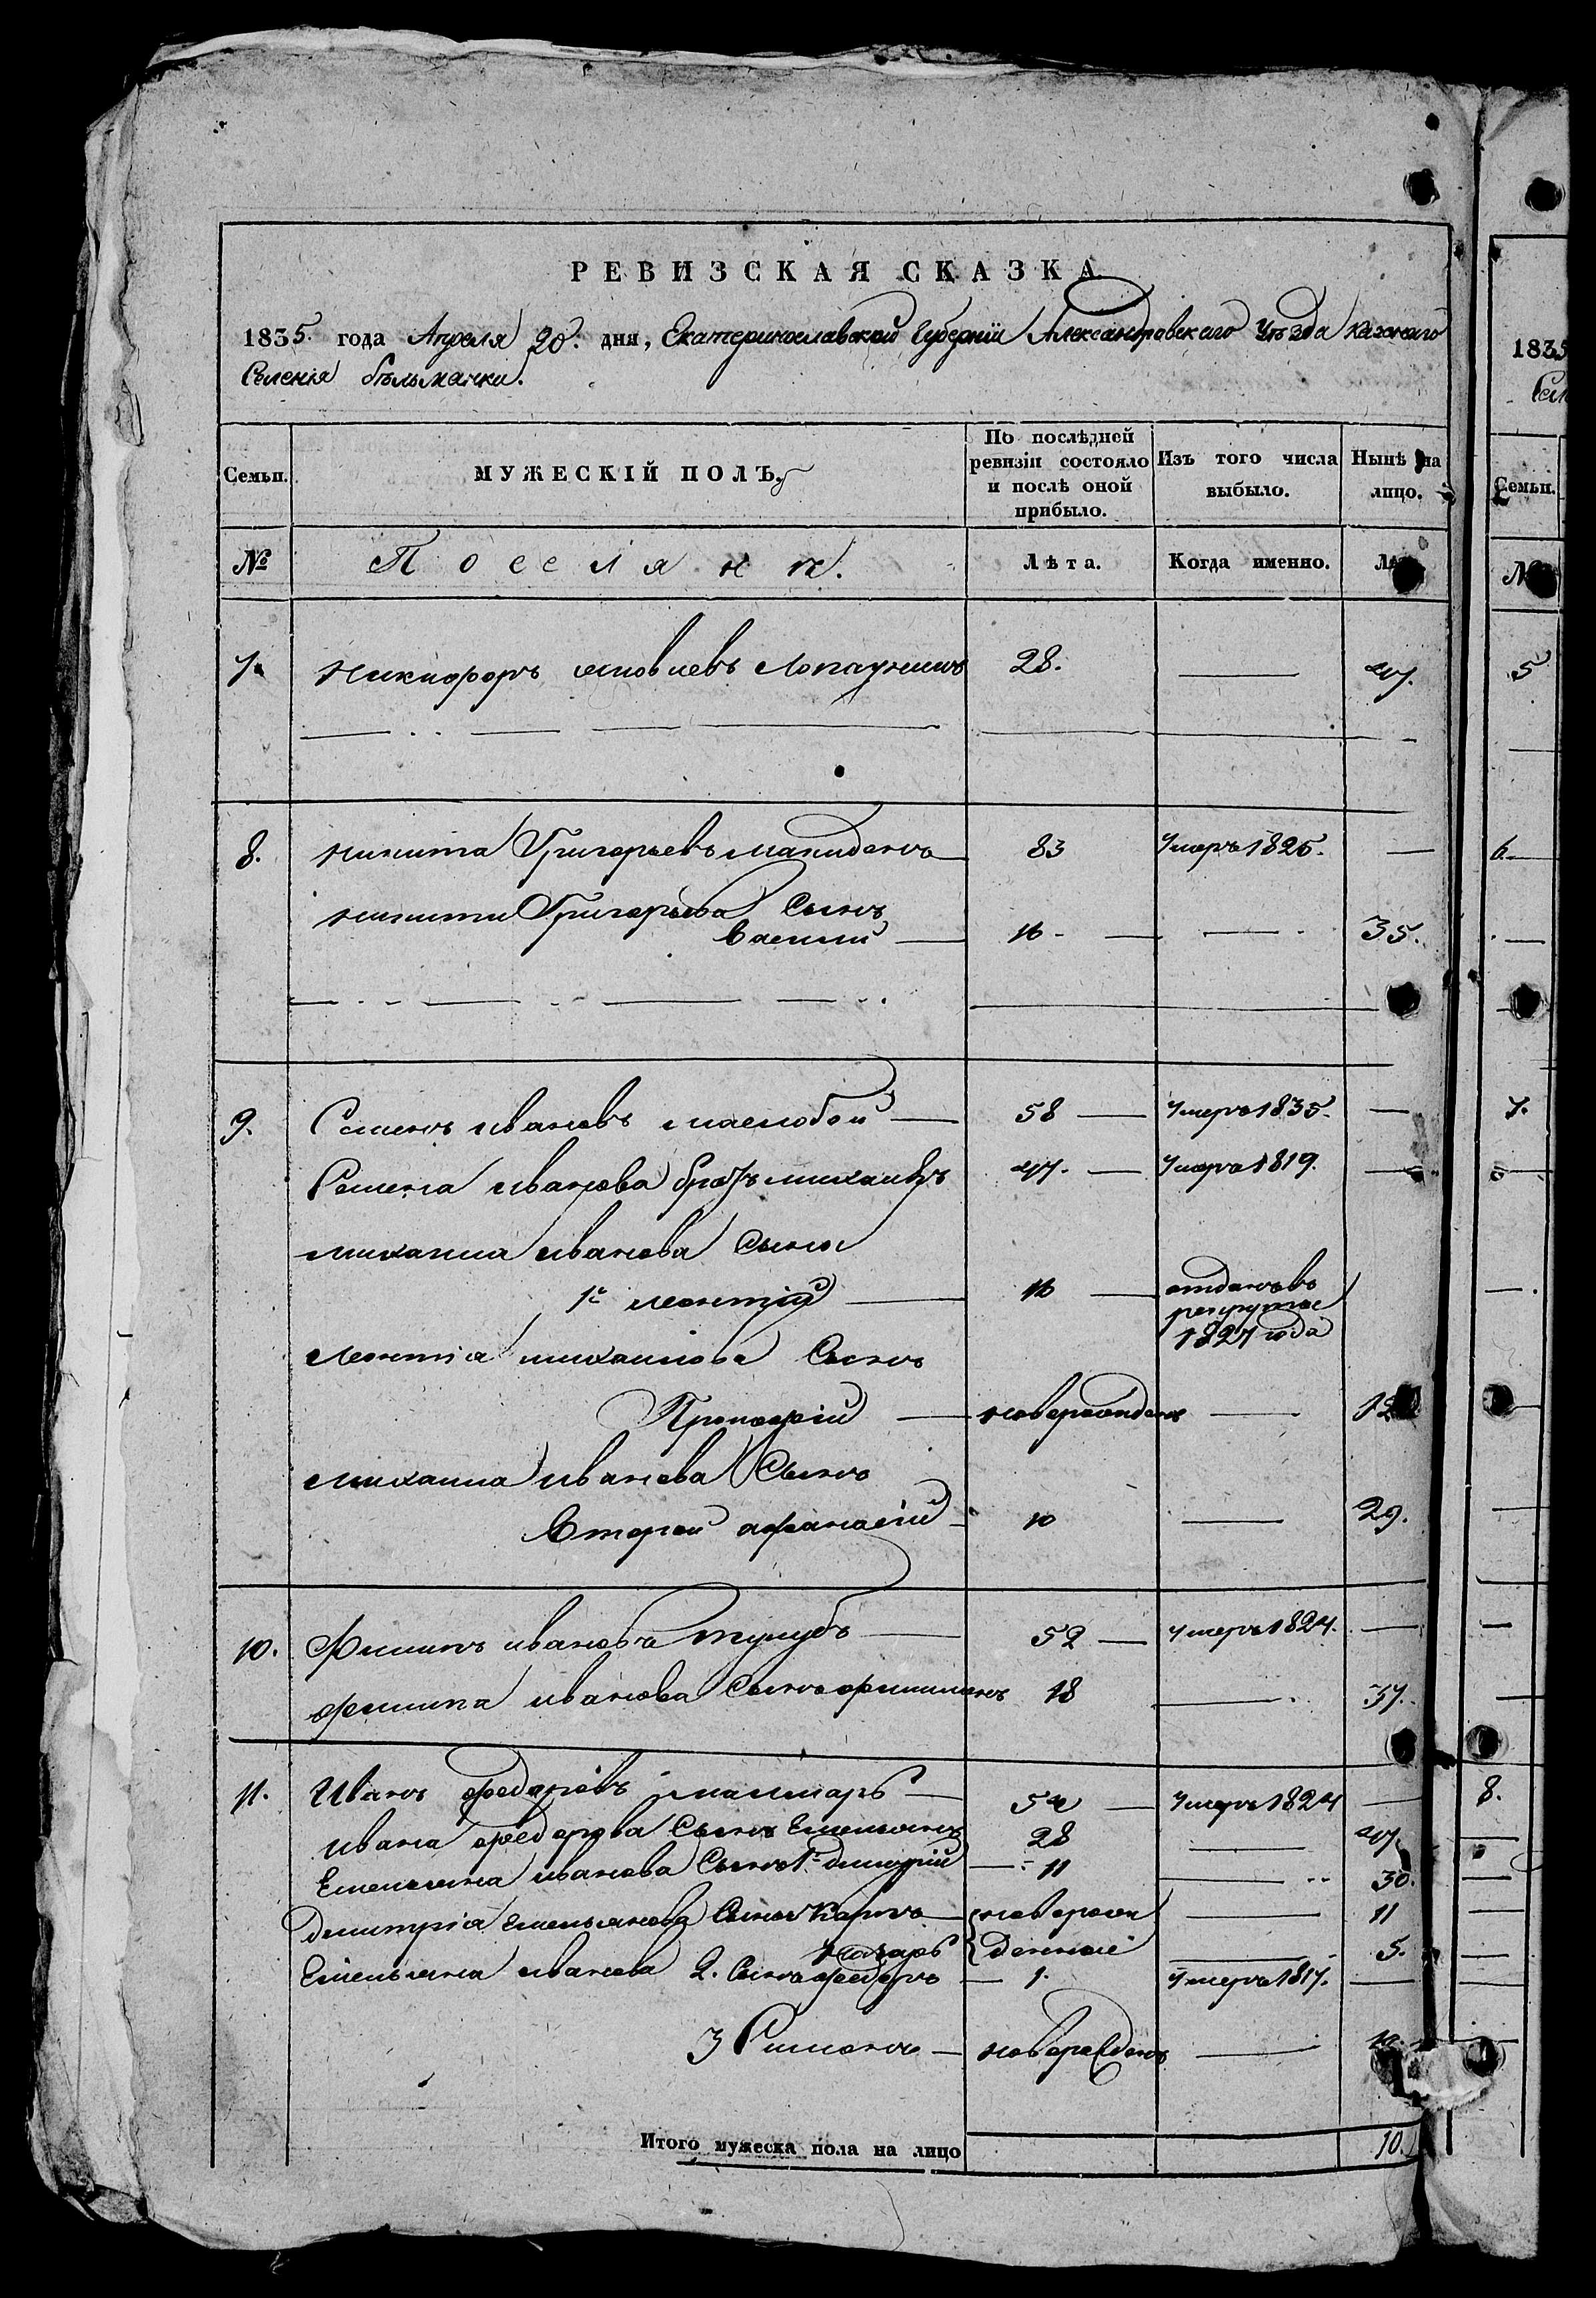 РЕВИЗСКАЯ СКАЗКА
1835. года Апреля 20. дня, Екатеринославской Губернiи Александровскаго Уѣзда казенаго
Селенiя бѣльманки.
Семьи. МУЖЕСКIЙ ПОЛЪ. По послѣдней ревизiи состояло и послѣ оной прибыло. Изъ того числа выбыло. Нынѣ на лицо.
№ Поселянѣ. Лѣта. Когда именно.
7. Никифоръ 28. — 47.
8. никита Григорьевъ 83 Умеръ 1825. —
никиты Григорьева Сынъ
Василий — 16 — — 35.
9. Семенъ ивановъ маслобой — 58 — Умеръ 1835. —
Семена иванова братъ михаилъ 47. — Умеръ 1819. —
михаила иванова Сыны
1й леонтiй — 16 — отданъ въ
рекруты
1827 года
леонтiя михаилова Сынъ
Прокофiй — новорожденъ — 12
михаила иванова Сынъ
Второй афанасiй — 10 — 29.
10. Филипъ ивановъ тулубъ — 52 — Умеръ 1824. —
филипа иванова Сынъ филимонъ 18 — 37.
11. Иванъ федоровъ — 54 — Умеръ 1824 —
ивана федорова Сынъ Емельянъ 28 — 47.
Емельяна иванова Сынъ 1й дмитрiй — 11 — 30.
Дмитрiя Емельянова Сыны Карпъ — новорож — 11
Назаръ денные — 5.
Емельяна иванова 2. Сынъ федоръ — 1. Умеръ 1817. —
3 Симонъ — новорожденъ —
Итого мужеска пола на лицо 10.
1835
Семьи.
№
5
6.
7.
8.